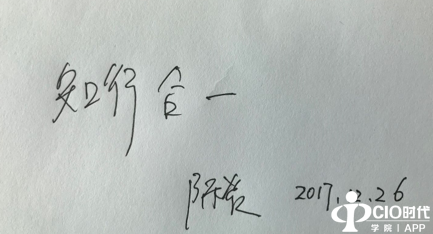 知行合一
陈 2017.12.26
CIO时代
学院 | APP